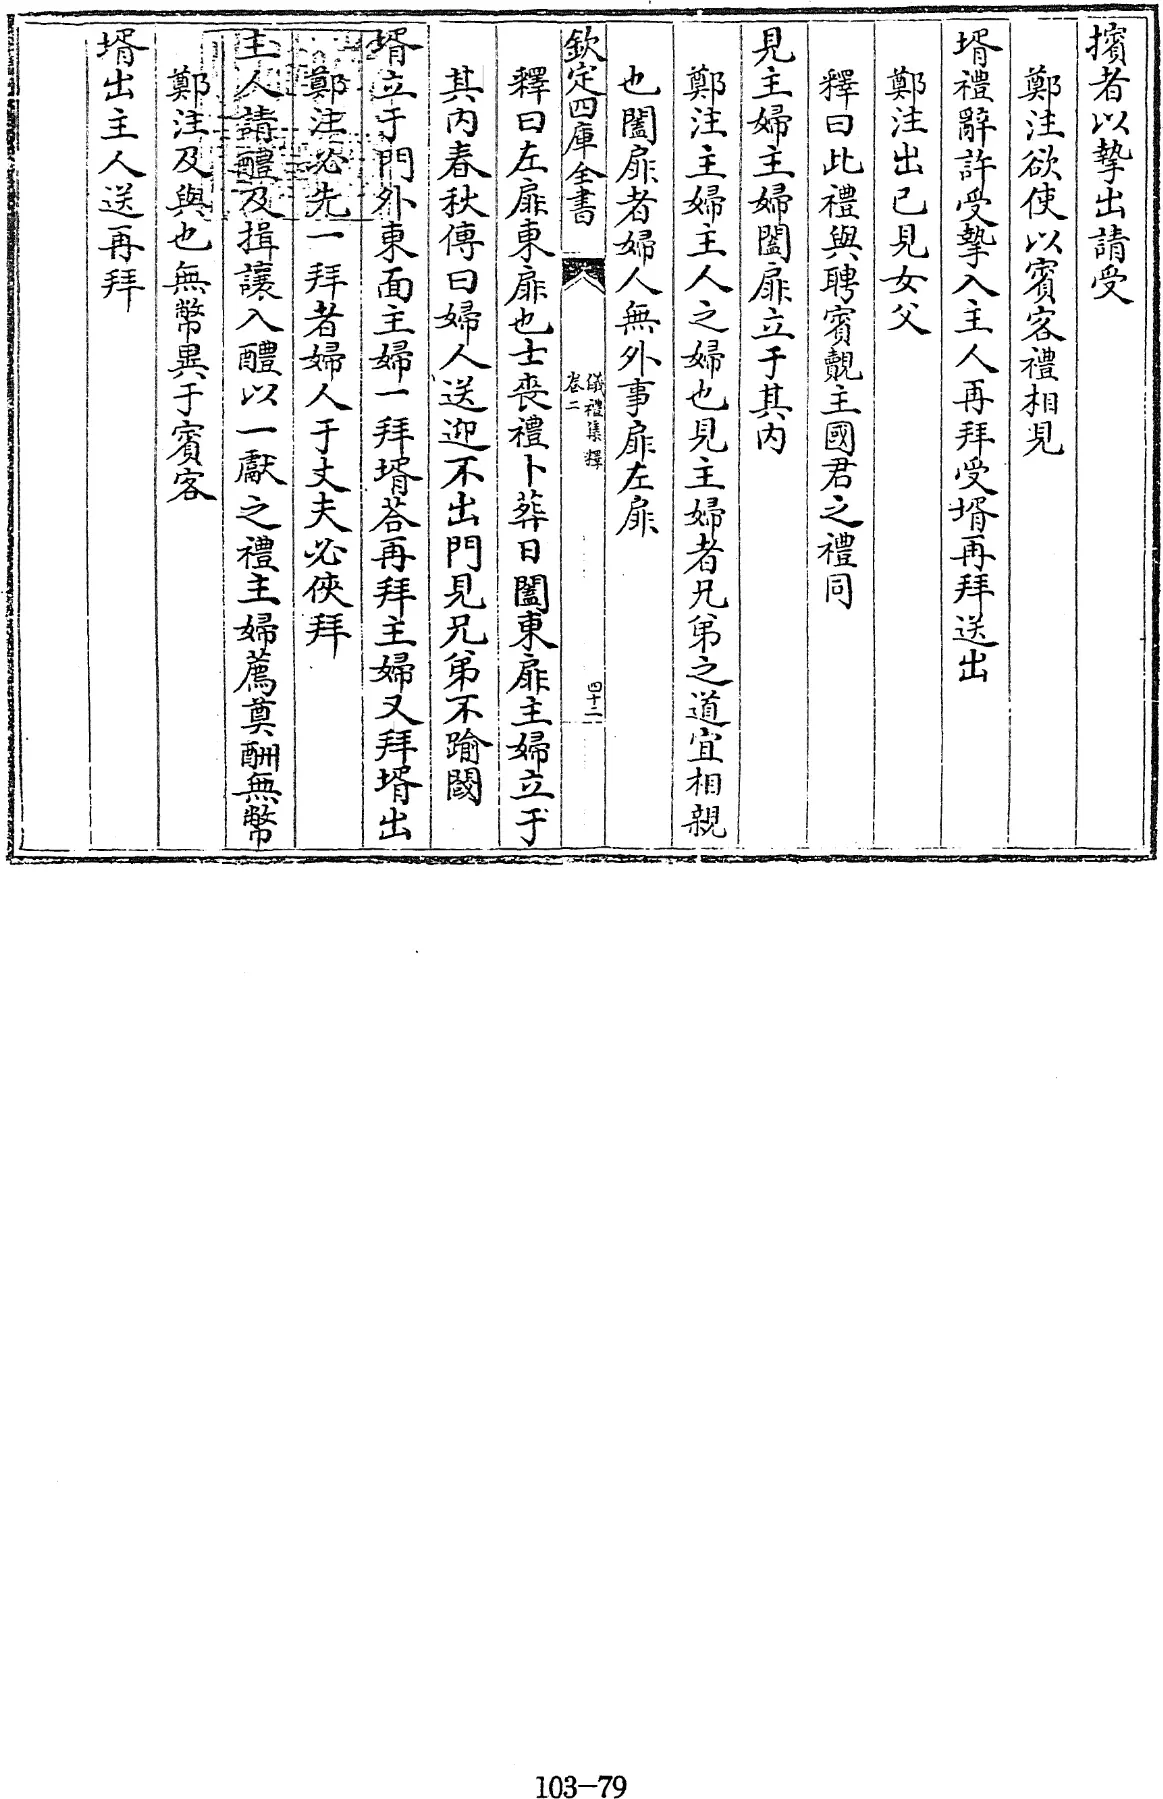 擯者以摯出請受
鄭注欲使以賓客禮相見
壻禮辭許受摯入主人再拜受壻再拜送出
鄭注出已見女父
釋曰此禮與聘賓覿主國君之禮同
見主婦主婦闔扉立于其内
鄭注主婦主人之婦也見主婦者兄弟之道宜相親
也闔扉者婦人無外事扉左扉
欽定四庫全書
儀禮集釋
卷二
四十二
釋曰左扉東扉也士喪禮卜葬日闔東扉主婦立于
其内春秋傳曰婦人送迎不出門見兄弟不踰閾
壻立于門外東面主婦一拜壻荅再拜主婦又拜壻出
鄭注必先一拜者婦人于丈夫必俠拜
主人請醴及揖讓入醴以一獻之禮主婦薦奠酬無幣
鄭注及與也無幣異于賓客
壻出主人送再拜
103-79